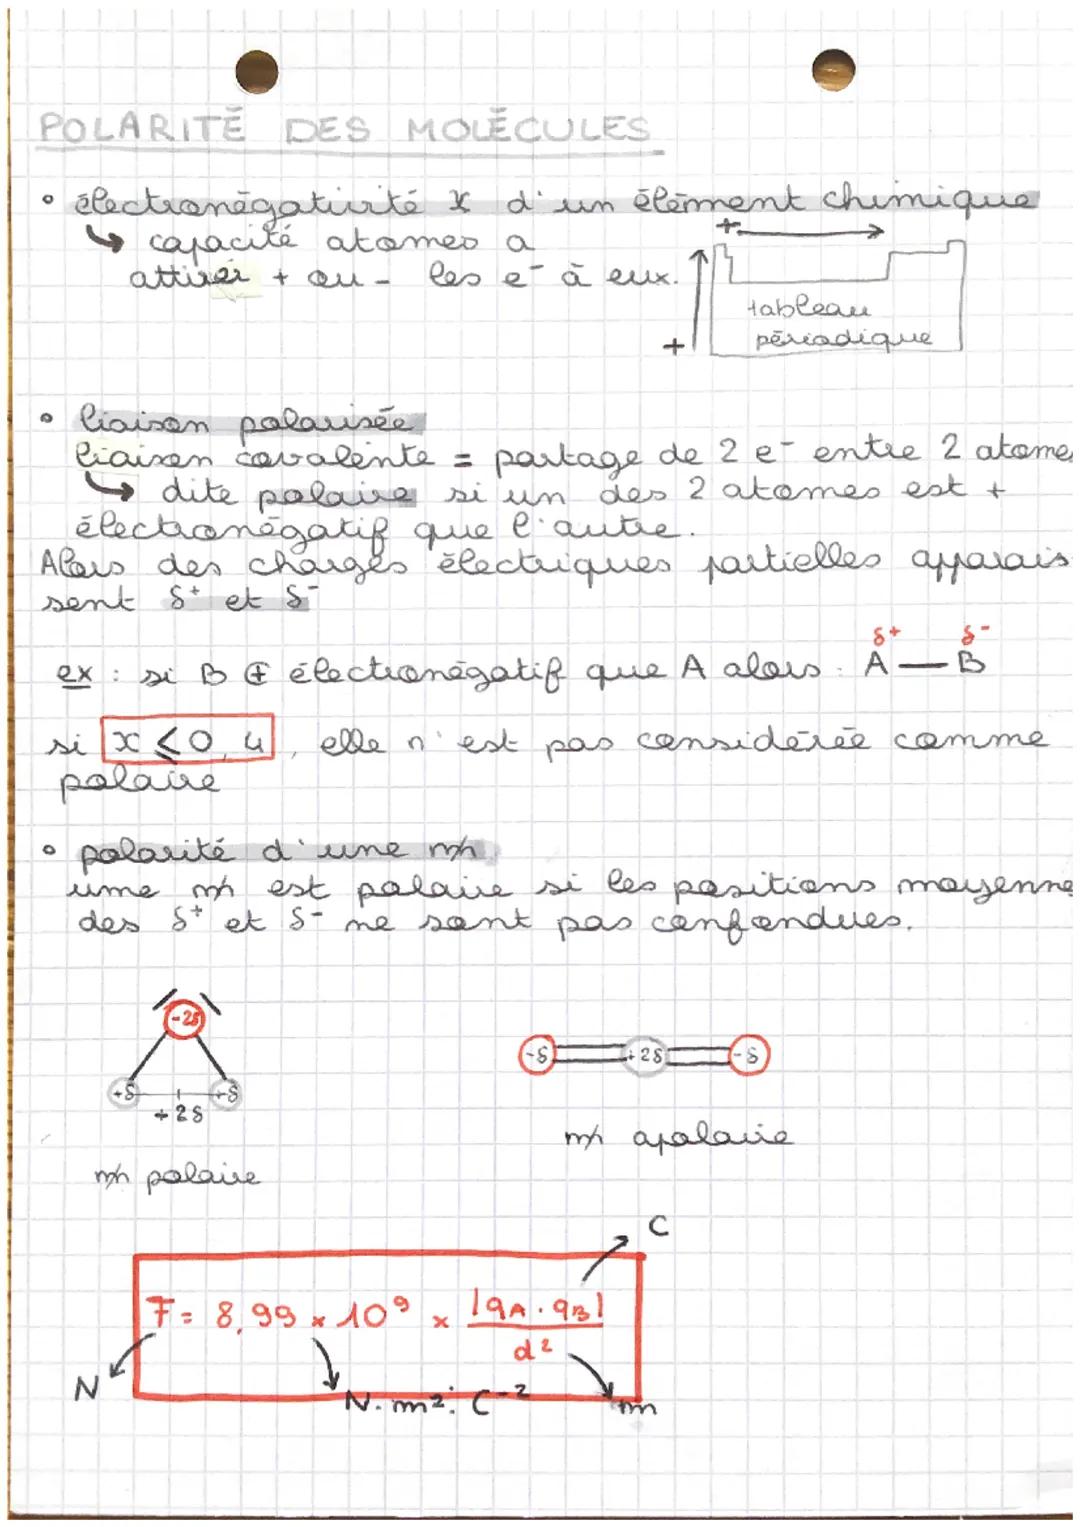 POLARITÉ DES MOLÉCULES
• électronégativité χ d'un élément chimique
↳ capacité atomes a
attirer + ou - les e⁻ à eux.
+
+
tableau
périodique
• liaison polarisée
liaison covalente = partage de 2 e⁻ entre 2 atomes
↳ dite polaire si un des 2 atomes est +
électronégatif que l'autre.
Alors des charges électriques partielles apparais-
sent δ⁺ et δ⁻
δ+ δ-
ex : si B ⊕ électronégatif que A alors : A — B
si x ⩽ 0,4, elle n'est pas considérée comme
polaire
• polarité d'une mh
une mh est polaire si les positions moyenne
des δ⁺ et δ⁻ ne sont pas confondues.
-2δ
+δ +δ
+2δ
mh polaire
-δ +2δ -δ
mh apolaire
C
F = 8,99 × 10⁹ × |qA . qB| / d²
N
N.m².C⁻²
m